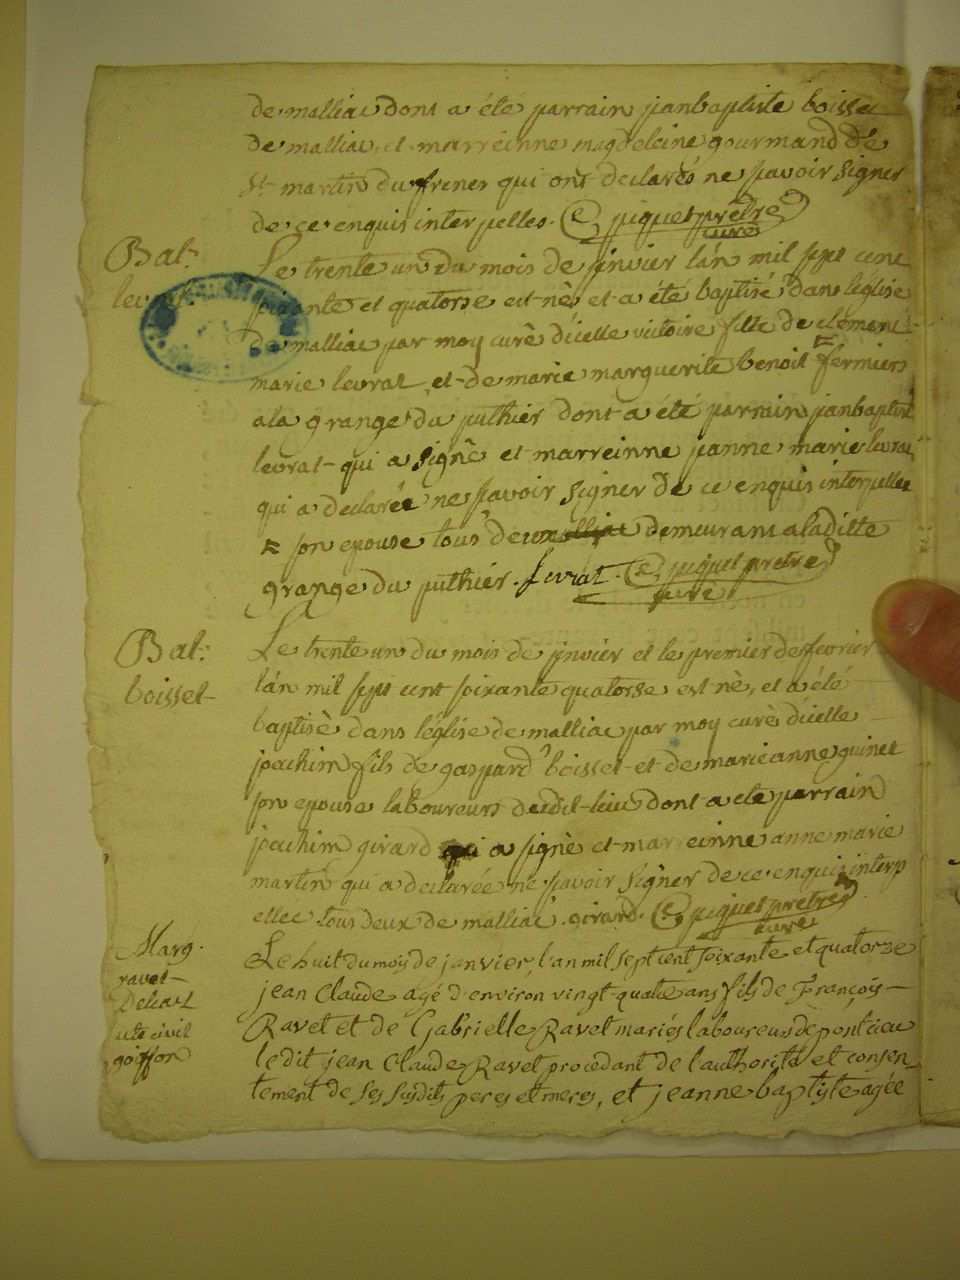 de malliac dont a été parrain janbaptiste boisset
de malliac et marreinne magdeleine gourmand de
St martin du frenes qui ont declarés ne savoir signer
de ce enquis interpelles. piquet prêtre
curé
Bat:
levrat
Le trente un du mois de janvier lân mil sept cent
soixante et quatorse est nè, et a été baptisé dans léglise
de malliac par moy curè dicelle victoire fille de clément
marie levrat et de marie marguerite benoit = férmiers
a la grange du puthier dont a été parrain janbaptist
levrat qui a signê et marreinne janne marie levrat
qui a declarée ne savoir signer de ce enquis interpelles
= son epouse tous de malliac demeurant a la ditte
grange du puthiér. Levrat. piquet pretre
curè
Bat:
boisset
Le trente un du mois de janvier et le premier de fevrier
lân mil sept cent soixante quatorse est nè, et a été
baptisè dans léglise de malliac par moy curè dicelle
joachim fils de gaspard boisset et de marieanne guinet
son epouse laboureurs dudit lieu dont a eté parrain
joachim girard qui a signè et marreinne anne marie
martin qui a declarée ne savoir signer de ce enquis interp
ellec tous deux de malliac. girard. piquet pretre
curè
Marg.
ravet
Deleat
acte civil
goiffon
Le huit du moy de janvier, l'an mil sept cent soixante et quatorze
jean Claude agé d'environ vingt-quatre ans fils de François
Ravet et de Gabrielle Ravet mariés laboureurs de pont cieu
ledit jean Claude Ravet procedant de l'authorité et consen-
tement de ses susdits peres et meres, et jeanne baptiste agée